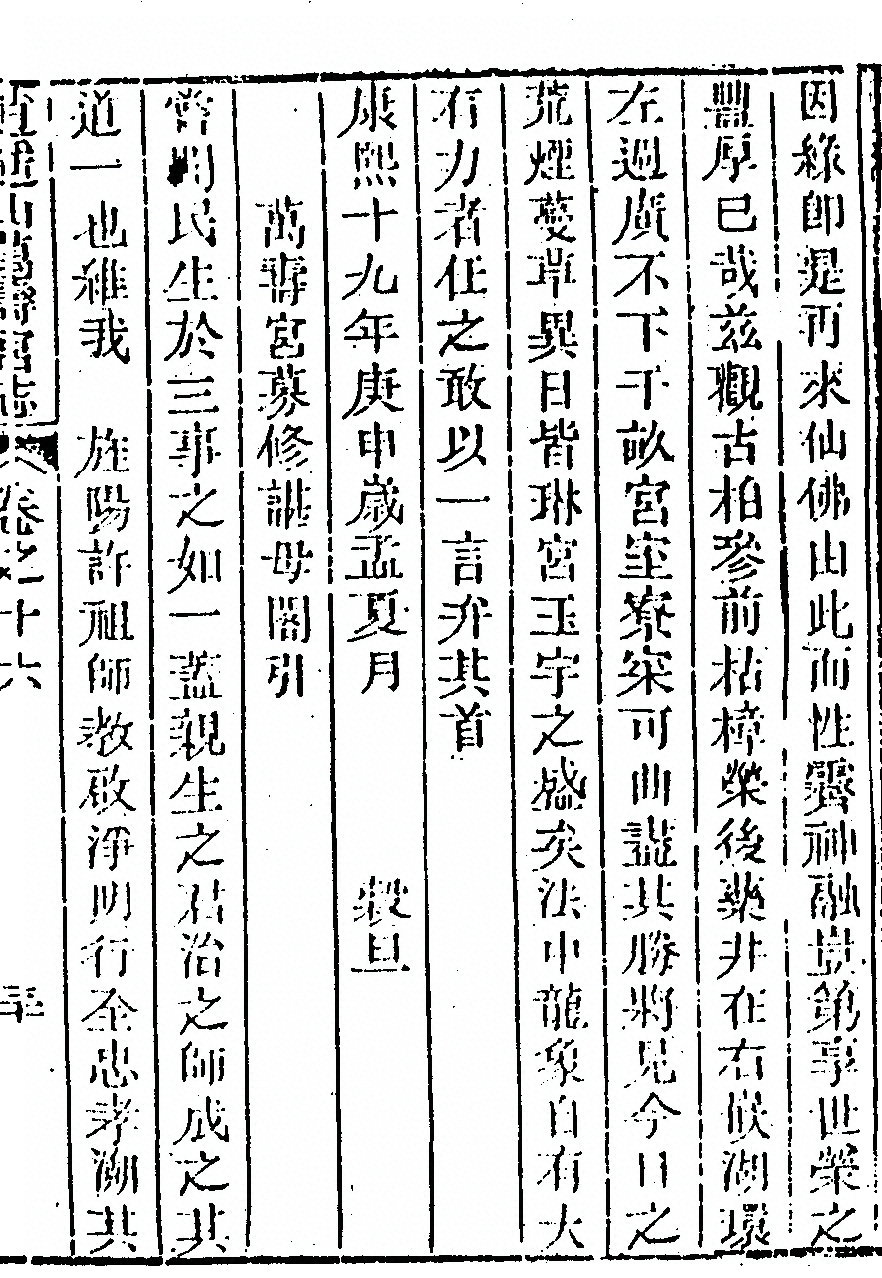 因緣即是再來仙佛由此而性靈神融豈第享世榮之
豐厚巳哉茲觀古柏參前枯樟榮後藥井在右候湖環
左過廣不下千畝宮室寮寀可曲盡其勝將見今日之
荒煙蔓草異日皆琳宮玉宇之盛矣法中龍象自有大
有力者任之敢以一言弁其首
康熙十九年庚申歲孟夏月 穀旦
萬壽宮募修諶母閣引
嘗聞民生於三事之如一蓋親生之君治之師成之其
道一也維我 旌陽許祖師教啟淨明行全忠孝溯其
逍遙山萬壽宮志 卷之十六